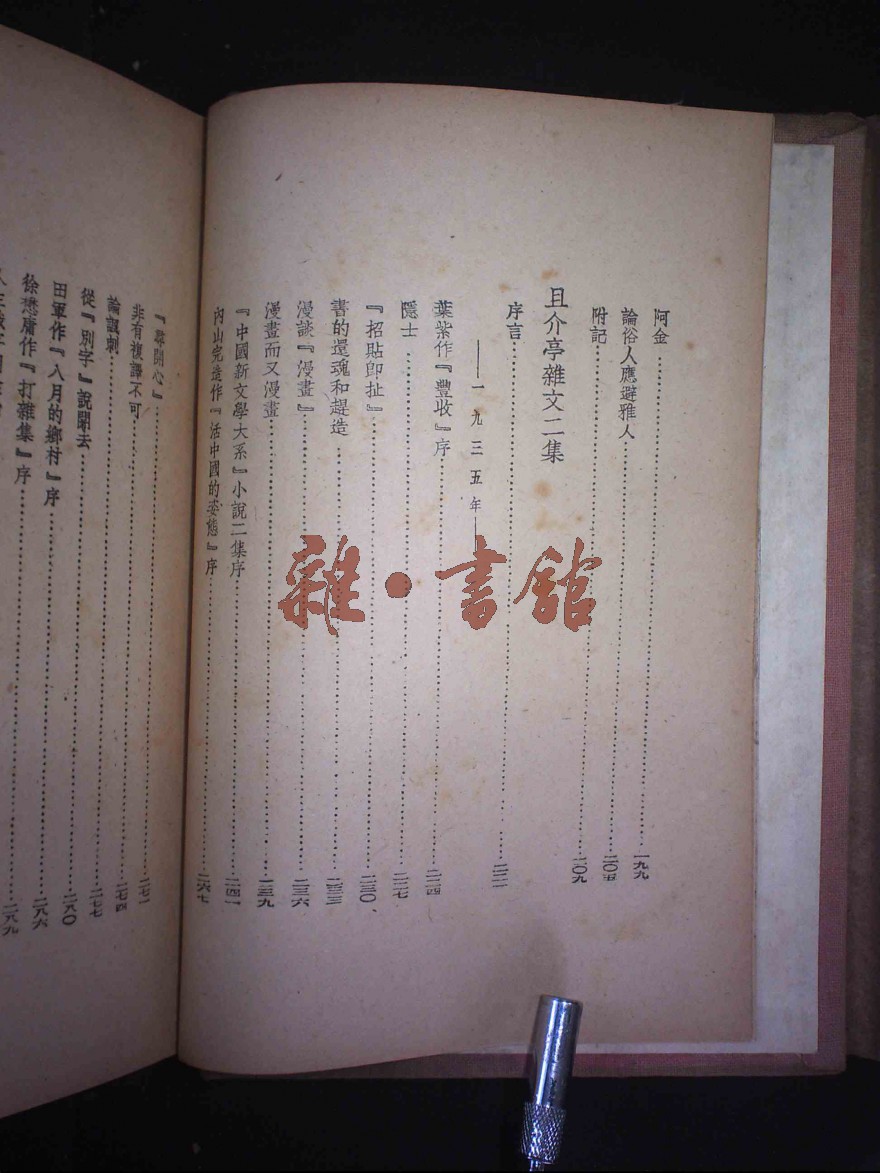 阿金……一九九
論俗人應避雅人……二〇五
附記……二〇九
且介亭雜文二集
——一九三五年——
序言……二二一
葉紫作『豐收』序……二二四
隱士……二二七
『招貼即扯』……二三〇
書的還魂和趕造……二三三
漫談『漫畫』……二三六
漫畫而又漫畫……二三九
『中國新文學大系』小說二集序……二四一
內山完造作『活中國的姿態』序……二六七
『尋開心』……二七一
非有複譯不可……二七四
論諷刺……二七七
從『別字』說開去……二八〇
田軍作『八月的鄉村』序……二八六
徐懋庸作『打雜集』序……二八九
雜·書館